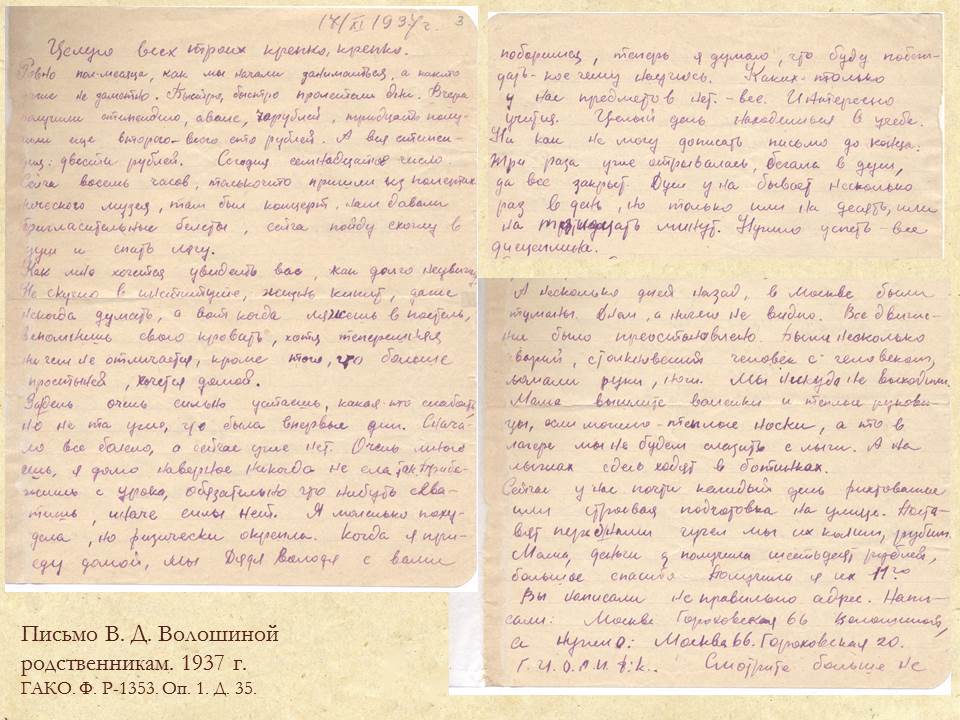 17/XI 1937 г.
3
Целую всех троих крепко, крепко.
Ровно пол-месяца, как мы начали заниматься, а как-то
уже не заметно. Быстро, быстро пролетели дни. Вчера
получили стипендию, аванс, 70 рублей, тридцать полу-
чим еще второго-всего сто рублей. А вся стипен-
дия: двести рублей. Сегодня семнадцатое число.
Сейча восемь часов, толькочто пришли из политех-
нического музея, там был концерт, нам давали
пригласительные билеты, сейча пойду схожу в
душ и спать лягу.
Как мне хочется увидеть вас, как долго не увижу.
Не скучно в институте, жизнь кипит, даже
некогда думать, а вот когда ляжешь в постель,
вспомнишь свою кровать, хотя теперешняя
ничем не отличается, кроме того, что больше
простыней, хочется домой.
За день очень сильно устаешь, какая-то слабость
но не та уже, что была впервые дни. Снача-
ло все болело, а сейчас уже нет. Очень много
ешь, я дома наверное никогда не ела так. Прибе-
жишь с урока, обязательно что нибудь схва-
тишь, иначе силы нет. Я маленько поху-
дела, но физически окрепла. Когда я при-
еду домой, мы Дядя Володя с вами
поборимся, теперь я думаю, что буду побеж-
дать-кое чему научусь. Каких-только
у нас предметов нет.-все. Интересно
учится. Целый день находишься в учебе.
Ни как не могу дописать письмо до конца.
Три раза уже отрывалась, бегала в душ,
да все закрыт. Душ у на бывает несколько
раз в день, но только или на десять, или
на тридцать минут. Нужно успеть-все
дисциплина.
А несколько дней назад, в Москве были
туманы. Днем, а ничего не видно. Все движе-
ние было приостановлено. Были несколько
аварий, столкновений человек с человеком,
ломали руки, ноги. Мы никуда не выходили.
Мама вышлите валенки и теплые рукови-
цы, если можно-теплые носки, а то в
лагере мы не будем слазить с лыж. А на
лыжах здесь ходят в ботинках.
Сейчас у нас почти каждый день фихтование
или строевая подготовка на улице. Поста-
вят перед нами чучел мы их колим, рубим.
Мама, деньги я получила шестьдесят рублей,
большое спасибо. Получила я их 11го
Вы написали не правильно адрес. Напи-
сали: Москва Гороховская 66 Волошиной,
а нужно: Москва 66. Гороховская 20.
Г.Ц.О.Л.И.Ф.К.. Смотрите больше не
Письмо В. Д. Волошиной
родственникам. 1937 г.
ГАКО. Ф. Р-1353. Оп. 1. Д. 35.